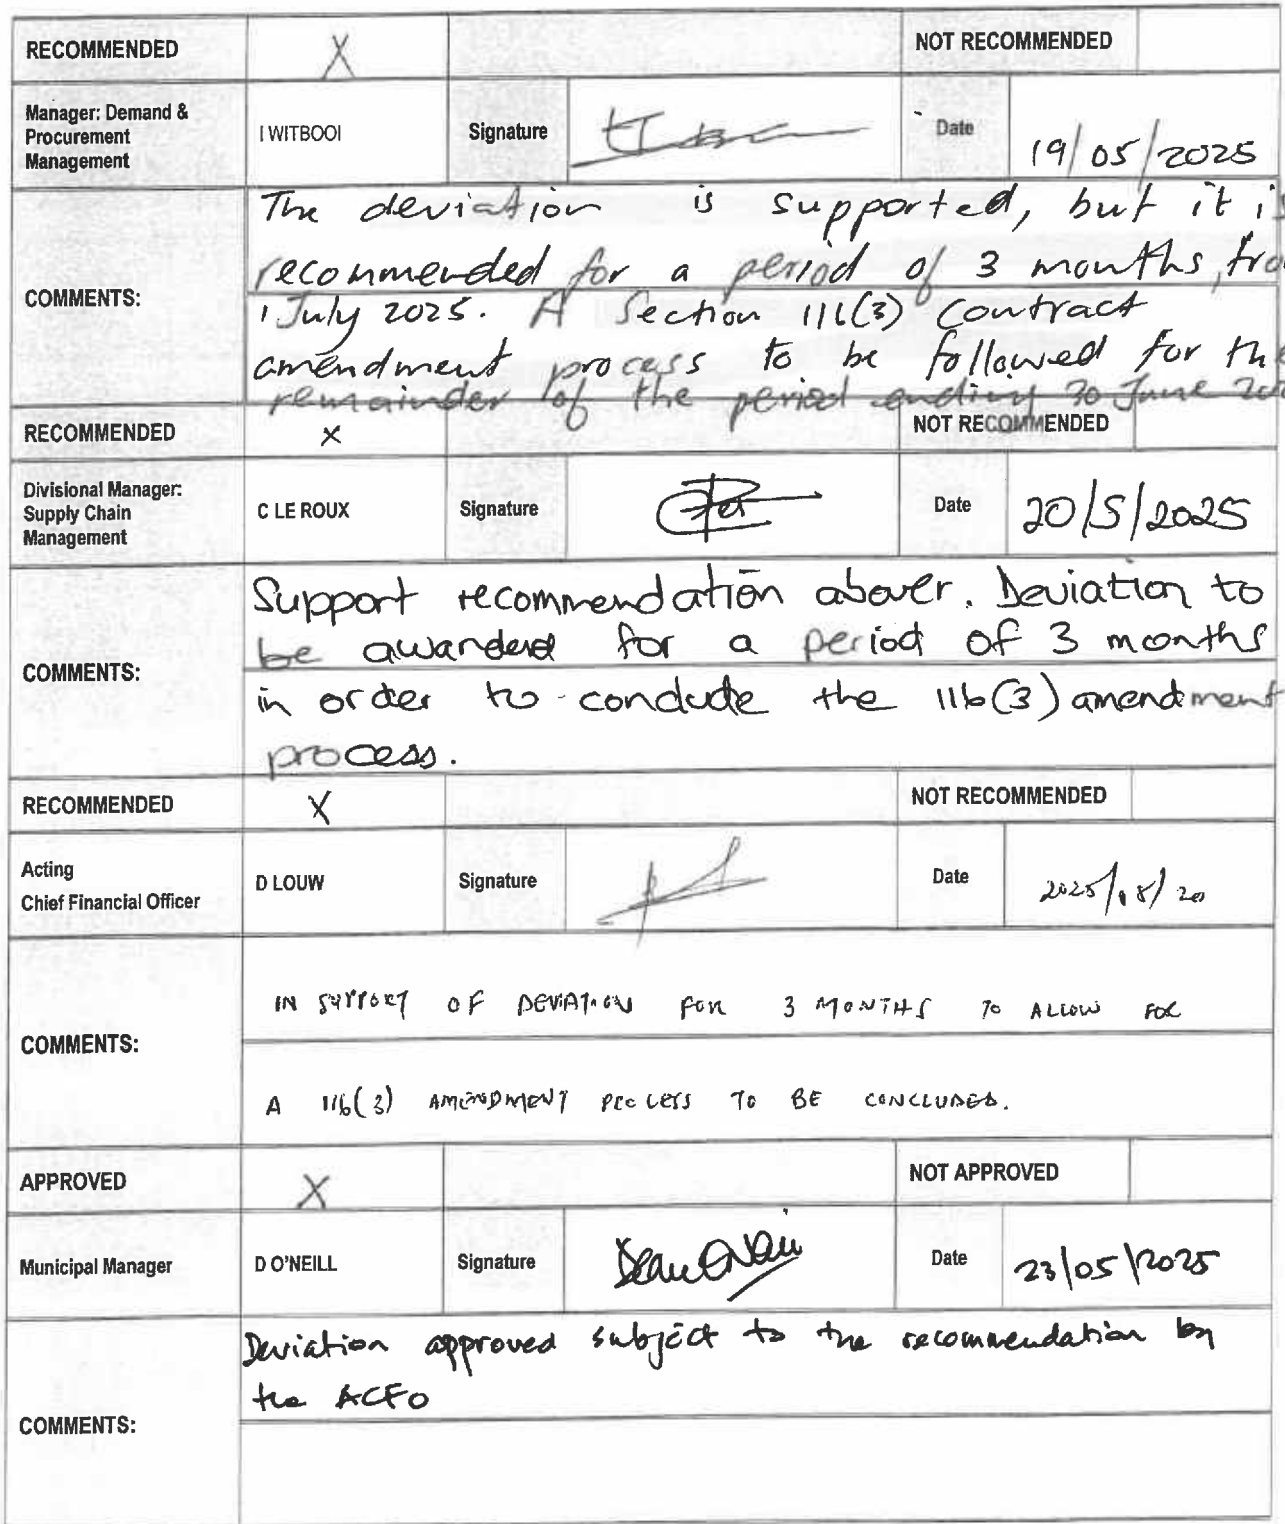 RECOMMENDED X NOT RECOMMENDED
Manager: Demand & Procurement Management I WITBOOI Signature Date 19/05/2025
COMMENTS:
The deviation is supported, but it is
recommended for a period of 3 months, fro
1 July 2025. A Section 116(3) contract
amendment process to be followed for the
remainder of the period ending 30 June 20
RECOMMENDED X NOT RECOMMENDED
Divisional Manager: Supply Chain Management C LE ROUX Signature Date 20/5/2025
COMMENTS:
Support recommendation above. Deviation to
be awarded for a period of 3 months
in order to conclude the 116(3) amendment
process.
RECOMMENDED X NOT RECOMMENDED
Acting Chief Financial Officer D LOUW Signature Date 2025/ /20
COMMENTS:
IN SUPPORT OF DEVIATION FOR 3 MONTHS TO ALLOW FOR
A 116(3) AMENDMENT PROCESS TO BE CONCLUDED.
APPROVED X NOT APPROVED
Municipal Manager D O'NEILL Signature Date 23/05/2025
COMMENTS:
Deviation approved subject to the recommendation by
the ACFO